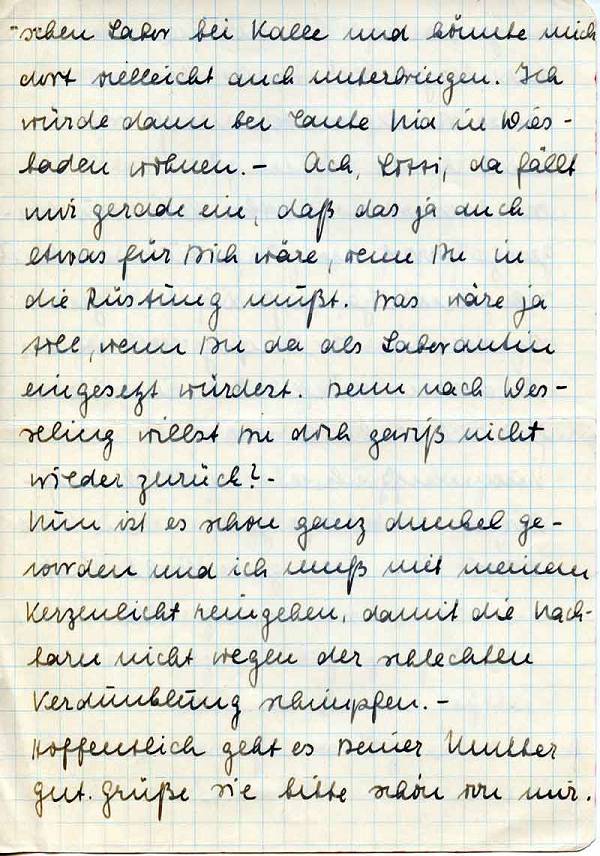 schen Labor bei Kalle und könnte mich
dort vielleicht auch unterbringen. Ich
würde dann bei Tante Mia in Wies-
baden wohnen. - Ach, Lossi, da fällt
mir gerade ein, daß das ja auch
etwas für Dich wäre, wenn Du in
die Rüstung mußt. Das wäre ja
toll, wenn Du da als Laborantin
eingesetzt würdest. Denn nach Wes-
seling willst Du doch gewiß nicht
wieder zurück? -
Nun ist es schon ganz dunkel ge-
worden und ich muß mit meinem
Kerzenlicht reingehen, damit die Nach-
barn nicht wegen der schlechten
Verdunklung schimpfen. -
Hoffentlich geht es Deiner Mutter
gut. Grüße sie bitte schön von mir.